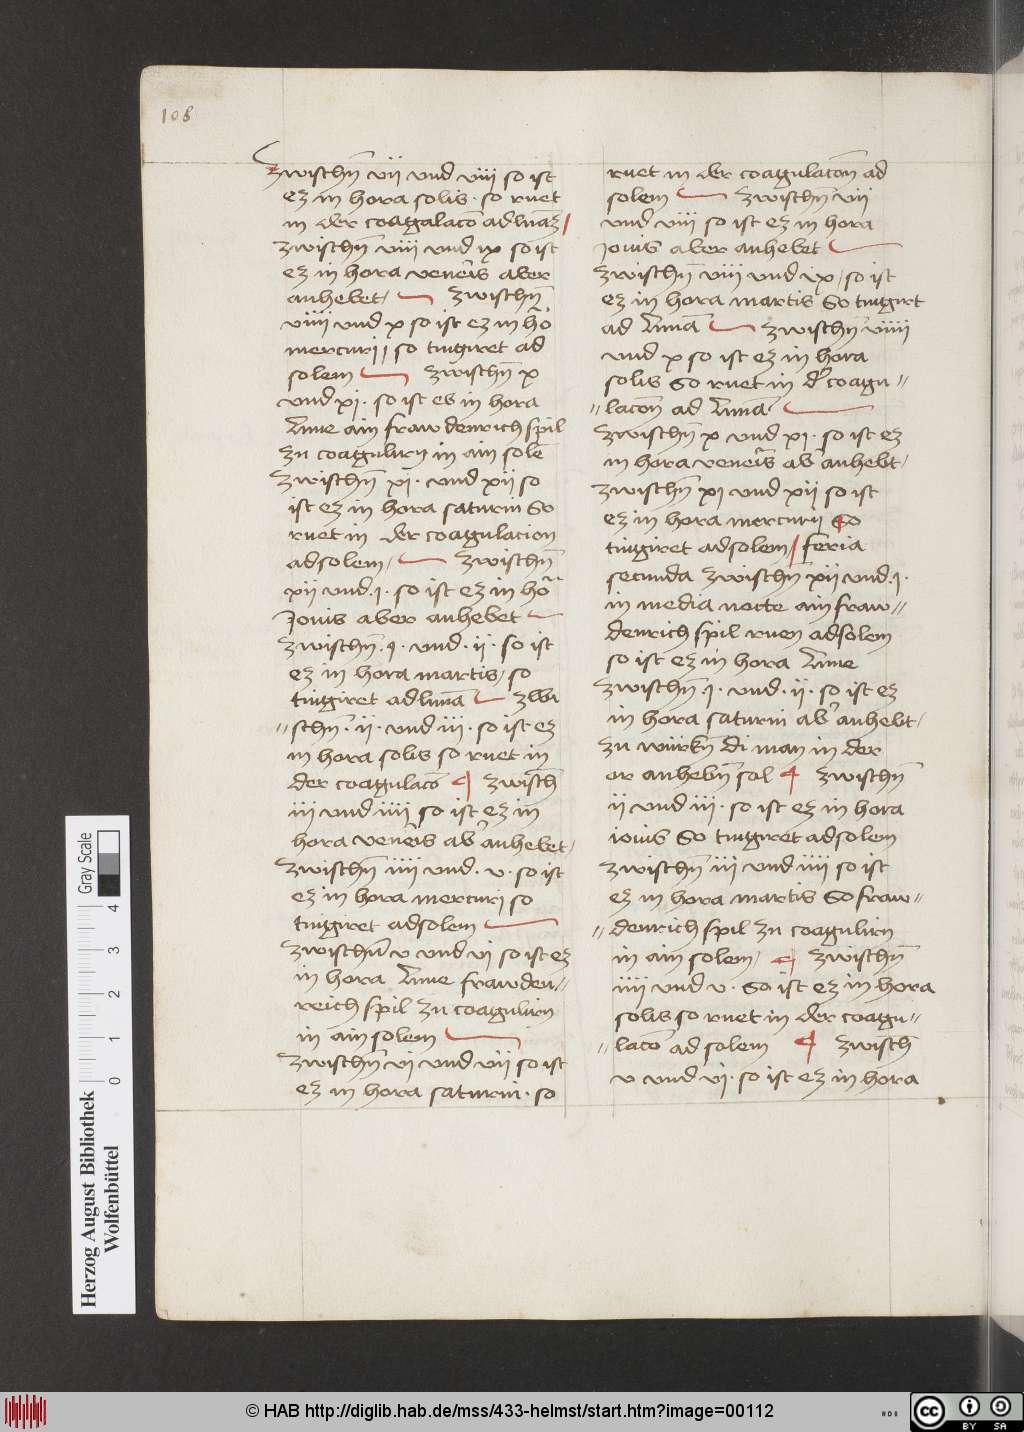 108
zwischn̄ vii vnd viii so ist
ez in hora solis · so ruet
in der coagalacō ad lunā /
zwischn̄ viii vnd ix so ist
ez in hora veneris aber
anhebet / zwischn̄
viiii vnd x so ist ez in hō
mercurii so tingiret ad
solem zwischn̄ x
vnd xi · so ist es in hora
lune ain fraw denrich spil
zu coagulirn in ain solē
zwischn̄ xi · vnd xii so
ist ez in hora saturni So
ruet in der coagulacion
ad solem / zwischn̄
xii vnd · i · so ist ez in hō
Jovis aber anhebet
zwischn̄ · i · vnd · ii · so ist
ez in hora martis / so
tingiret ad lunā zwi
〃schn̄ · ii · vnd iii · so ist ez
in hora solis so ruet in
der coagulacō ¶ zwisch̄
iii vnd iiii so ist ez in
hora veneris ab' anhebet /
zwischn̄ iiii vnd · v · so ist
ez in hora mercuri so
tingiret ad solem
zwischn̄ v vnd vi so ist ez
in hora lune frawden〃
reich spil zu coagulirn
in ain solem
zwischn̄ vi vnd vii so ist
ez in hora saturni · so
ruet in der coagulacōn ad
solem zwischn̄ vii
vnd viii so ist ez in hora
iouis aber anhebet
zwischn̄ viii vnd ix / so ist
ez in hora martis So tingirt
ad lunā zwischn̄ viiii
vnd x so ist ez in hora
solis So ruet in d' coagu〃
〃lacōn ad lunā
zwischn̄ x vnd xi · so ist ez
in hora veneris ab' anhebt /
zwischn̄ xi vnd xii so ist
ez in hora mercurij So
tingiret ad solem / feria
secunda zwischn̄ xii vnd · i ·
in media nocte ain fraw〃
denrich spil ruen ad solem
so ist ez in hora lune
zwischn̄ · i · vnd · ii · so ist ez
in hora saturni ab' anhebt /
zu würkn̄ di man in der
or anhebn̄ sol ¶ zwischn̄
ii vnd iii · so ist ez in hora
iouis So tingiret ad solem
zwischn̄ iii vnd iiii so ist
ez in hora martis So fraw〃
〃denrich spil zu coagulirn
in ain solem / ¶ zwischn̄
iiii vnd v · So ist ez in hora
solis so ruet in der coagu〃
〃lacō ad solem ¶ zwisch̄
v vnd vi · so ist ez in hora
Herzog August Bibliothek
Wolfenbüttel
Gray Scale
0 1 2 3 4
© HAB http://diglib.hab.de/mss/433-helmst/start.htm?image=00112
HAB
cc BY SA